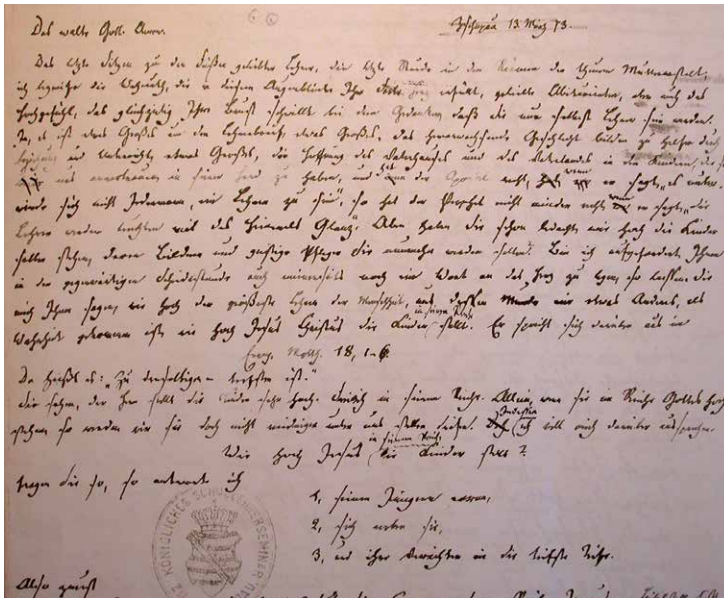 Das walte Gott. Amen.
Zschopau 13. März 73.
Das letzte Sitzen zu den Füßen geliebter Lehrer, die letzte Stunde in den Räumen der theuren Mutteranstalt,
ich begreife die Wehmuth, die in diesem Augenblicke Ihr Herz erfüllt, geliebte Abiturienten, aber auch das
Hochgefühl, das gleichzeitig Ihre Brust schwellt bei dem Gedanken, daß Sie nun selbst Lehrer sein werden.
Ja, es ist etwas Großes um den Lehrerberuf, etwas Großes, das heranwachsende Geschlecht bilden zu helfen durch
Erziehung und Unterricht, etwas Großes, die Hoffnung des Vaterhauses und des Vaterlandes in den Kindern, die
uns anvertrauen, in seiner Hand zu haben, und hat der Apostel recht, wenn er sagt, „es unter-
winde sich nicht Jedermann, ein Lehrer zu sein“, so hat der Prophet nicht minder recht, wenn er sagt, „die
Lehrer werden leuchten wie des Himmels Glanz“. Aber haben Sie schon bedacht, wie hoch die Kinder
selber stehen, deren Bildner und geistige Pfleger Sie nunmehr werden sollen? Bin ich aufgefordert, Ihnen
in der gegenwärtigen Scheidestunde auch meinerseits noch ein Wort an das Herz zu legen, so lassen Sie
mich Ihnen sagen, wie hoch der größeste Lehrer der Menschheit, aus dessen Munde nie etwas Anderes, als
Wahrheit gekommen ist, wie hoch Jesus Christus die Kinder in seinem Reiche stellt. Er spricht sich darüber aus in
Evang. Matth. 18, 1-6.
Da heißt es: „Zu derselbigen – tiefsten ist.“
Sie sehen, der Herr stellt die Kinder sehr hoch. Freilich in seinem Reich. Allein, wenn sie im Reiche Gottes hoch
stehen, so werden wir sie doch nicht niedriger unter uns stellen dürfen. Indessen ich will mich darüber aussprechen:
Wie hoch Jesus in seinem Reiche die Kinder stellt?
Fragen Sie so, so antworte ich
1, seinen Jüngern voran,
2, sich unter sie,
3, und ihre Verächter in die tiefste Tiefe.
KÖNIGLICHES SCHULLEHRERSEMINAR
Also zuerst